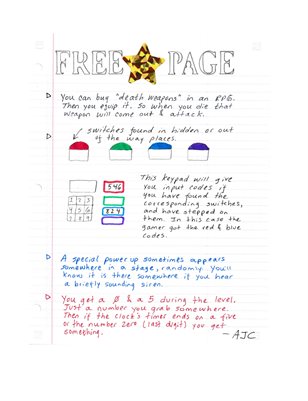 FREE PAGE
You can buy "death weapons" in an RPG.
Then you equip it. So when you die that
weapon will come out & attack.
switches found in hidden or out
of the way places.
This keypad will give
you input codes if
you have found the
corresponding switches,
and have stepped on
them. In this case the
gamer got the red & blue
codes.
546
1 2 3
4 5 6
824
A special power up sometimes appears
somewhere in a stage, randomly. You'll
know it is there somewhere if you hear
a briefly sounding siren.
You get a 0 & a 5 during the level.
Just a number you grab somewhere.
Then if the clock's timer ends on a five
or the number zero (last digit) you get
something.
- AJC